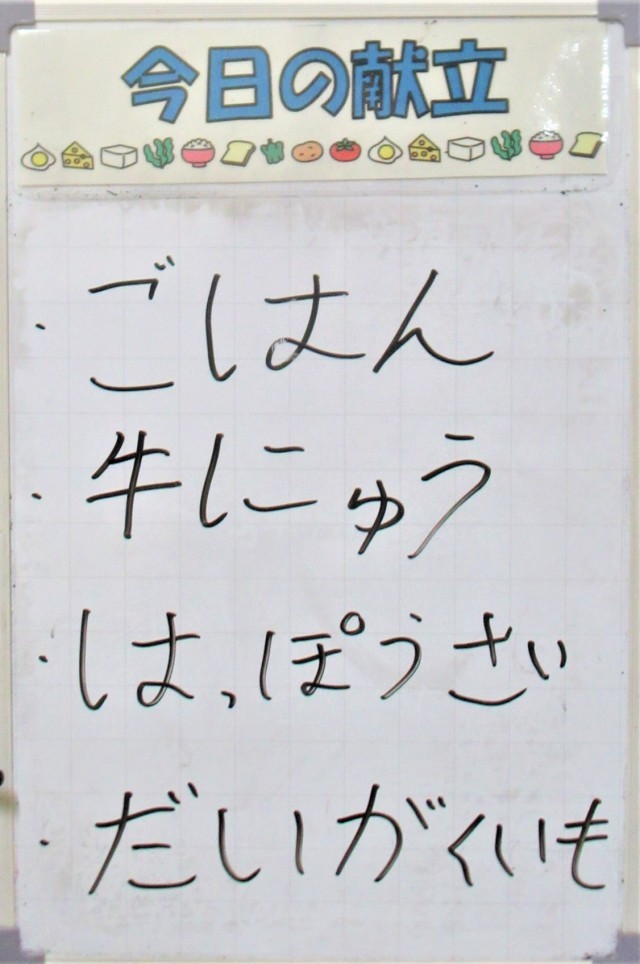 今日の献立
・ごはん
・牛にゅう
・はっぽうさい
・だいがくいも